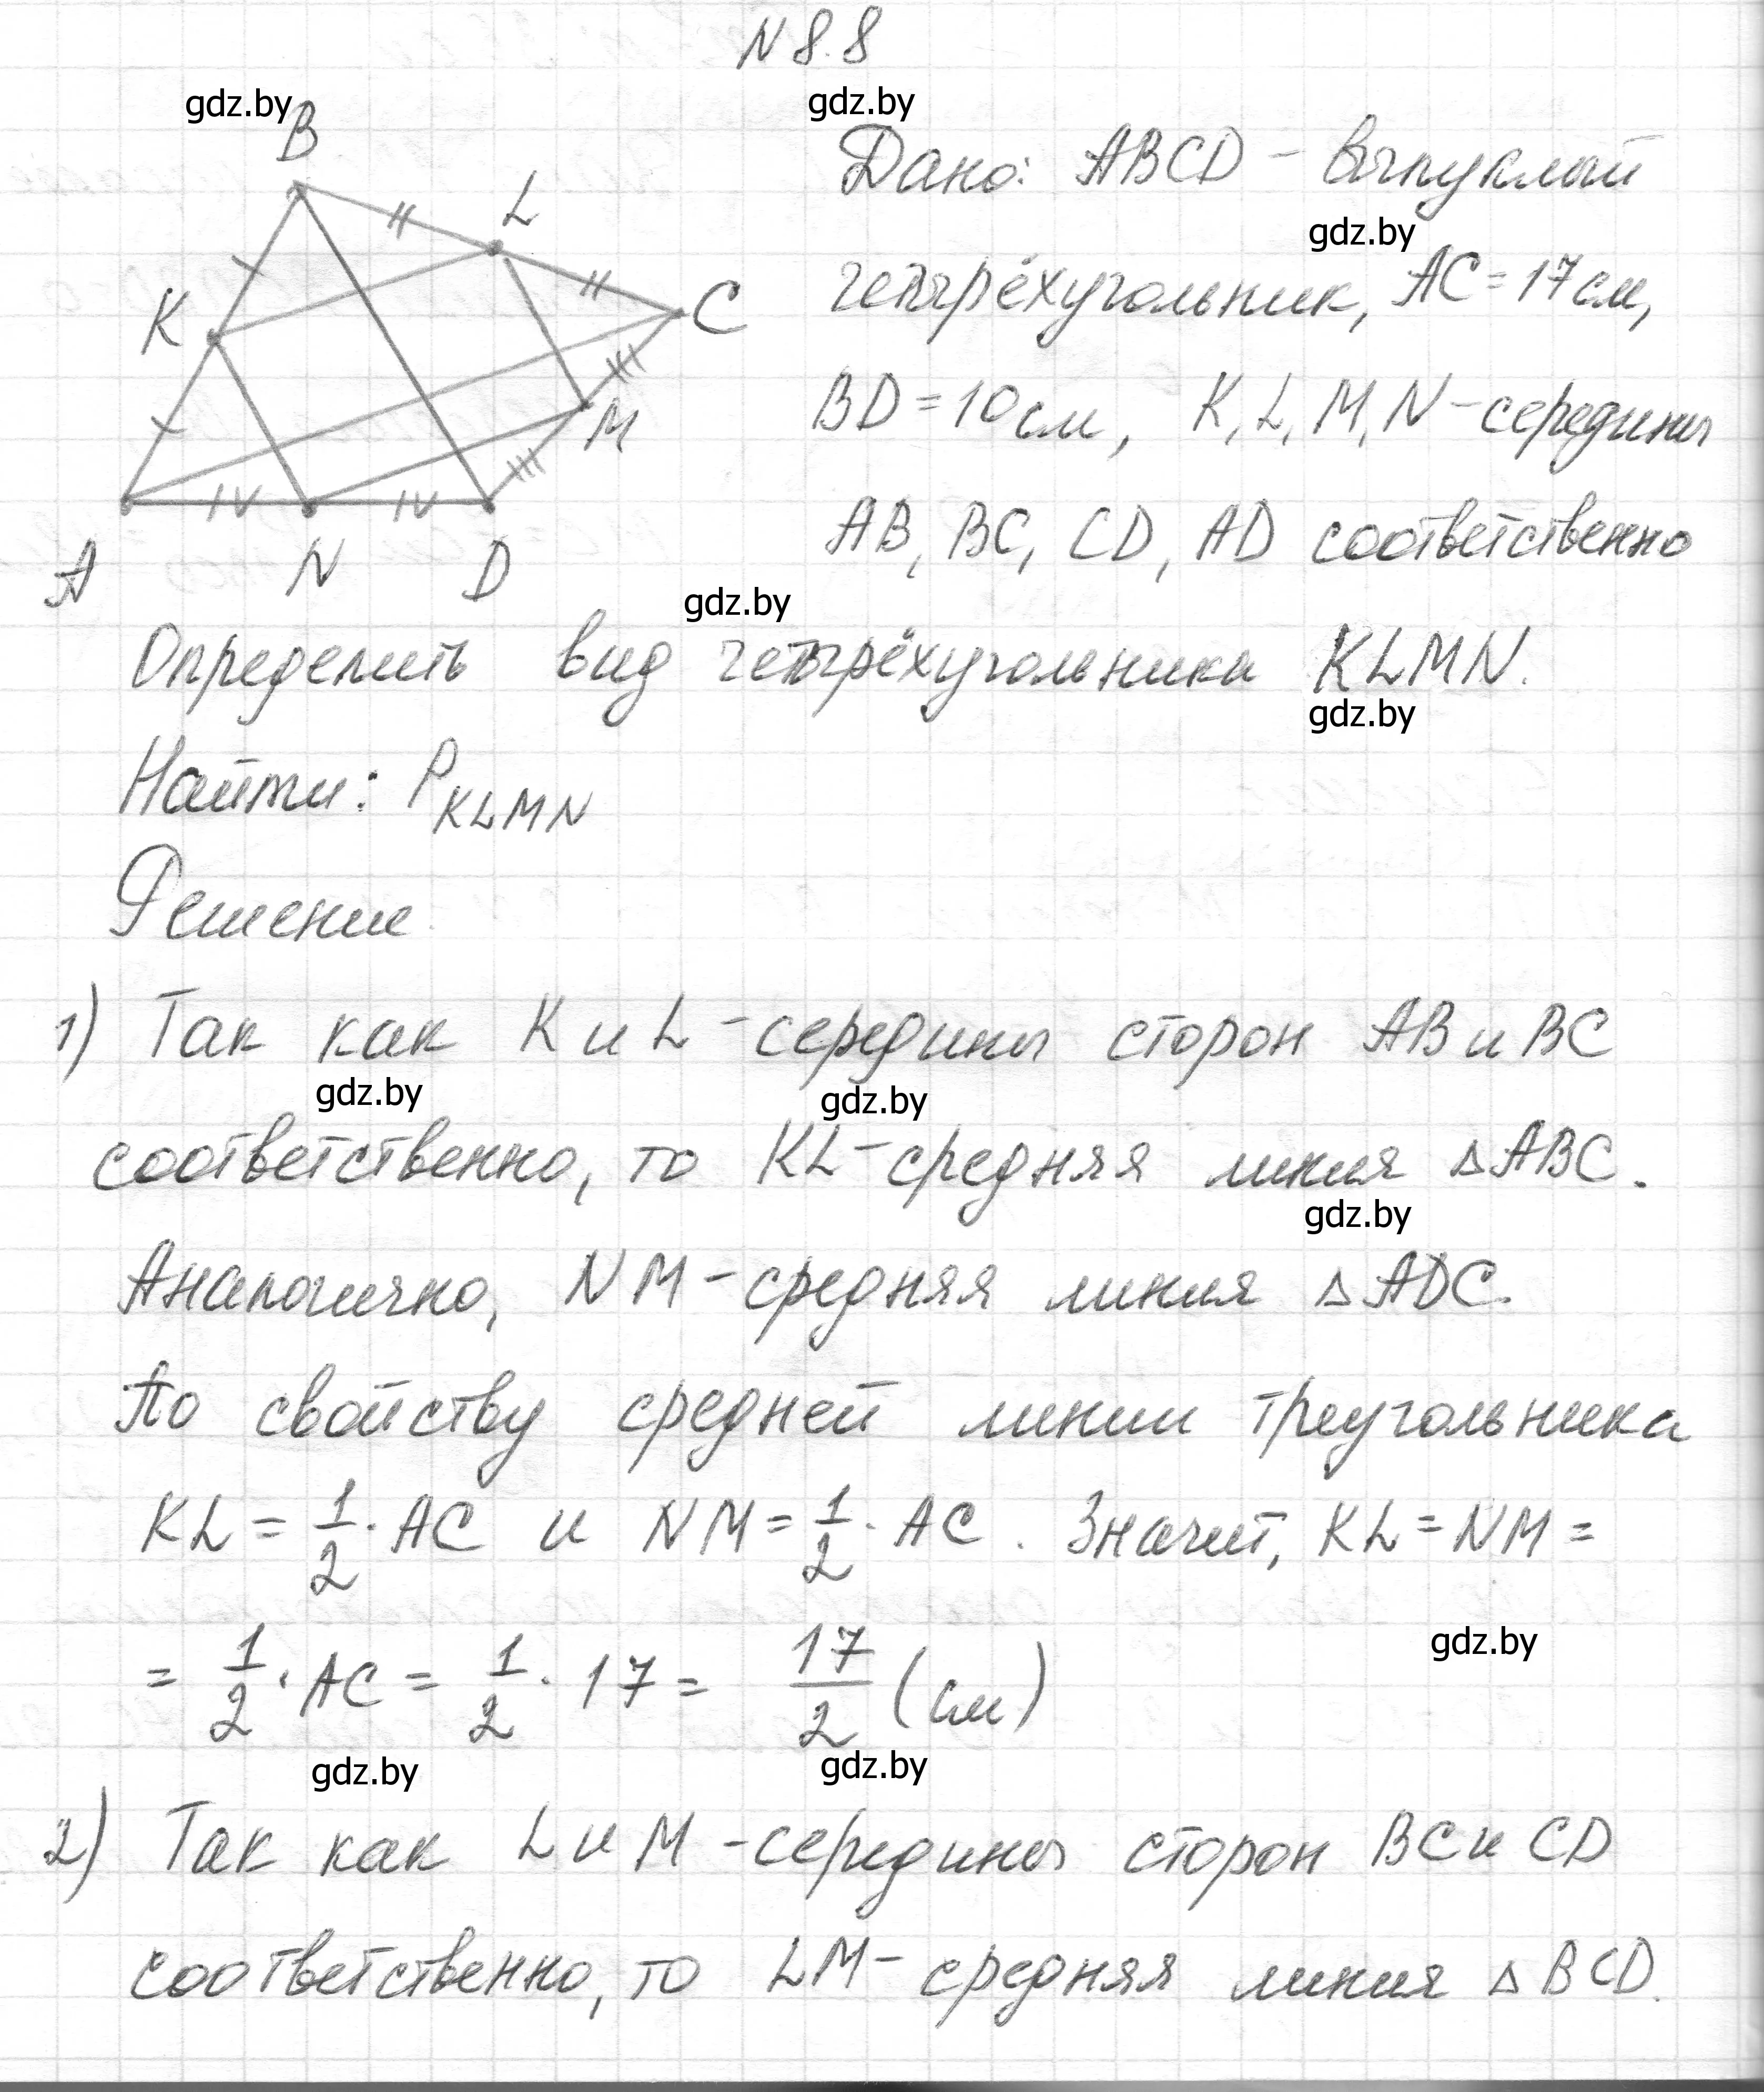 N 8.8
gdz.by gdz.by
B
L
K
C
M
A N D
Дано: ABCD - выпуклый
gdz.by
четырёхугольник, AC = 17 см,
BD = 10 см, K, L, M, N - середины
AB, BC, CD, AD соответственно
gdz.by
Определить вид четырёхугольника KLMN.
gdz.by
Найти: P KLMN
Решение
1) Так как K и L - середины сторон AB и BC
gdz.by gdz.by
соответственно, то KL - средняя линия △ABC.
gdz.by
Аналогично, NM - средняя линия △ADC.
По свойству средней линии треугольника
KL = 1/2 · AC и NM = 1/2 · AC. Значит, KL = NM =
gdz.by
= 1/2 · AC = 1/2 · 17 = 17/2 (см)
gdz.by gdz.by
2) Так как L и M - середины сторон BC и CD
соответственно, то LM - средняя линия △BCD.